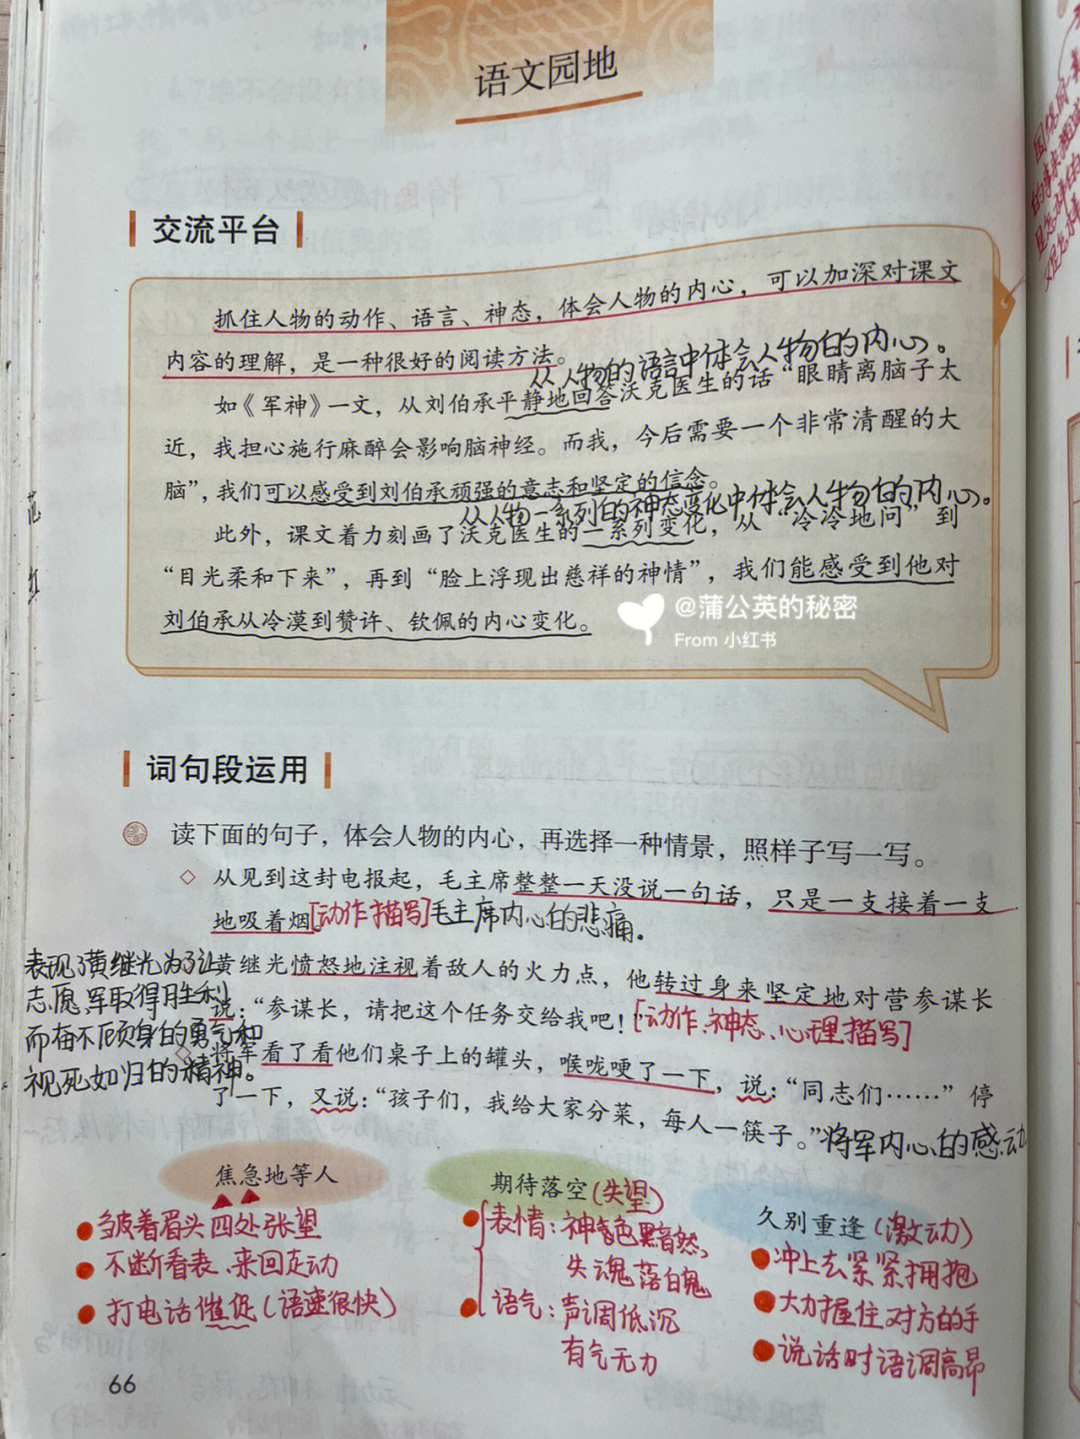 语文园地
交流平台
抓住人物的动作、语言、神态，体会人物的内心，可以加深对课文
内容的理解，是一种很好的阅读方法。
从人物的语言中体会人物的内心。
如《军神》一文，从刘伯承平静地回答沃克医生的话“眼睛离脑子太
近，我担心施行麻醉会影响脑神经。而我，今后需要一个非常清醒的大
脑”，我们可以感受到刘伯承顽强的意志和坚定的信念。
从人物一系列的神态变化中体会人物的内心。
此外，课文着力刻画了沃克医生的一系列变化，从“冷冷地问”到
“目光柔和下来”，再到“脸上浮现出慈祥的神情”，我们能感受到他对
刘伯承从冷漠到赞许、钦佩的内心变化。
@蒲公英的秘密
From 小红书
词句段运用
读下面的句子，体会人物的内心，再选择一种情景，照样子写一写。
◇ 从见到这封电报起，毛主席整整一天没说一句话，只是一支接着一支
地吸着烟。[动作描写]毛主席内心的悲痛。
表现了黄继光为了让
志愿军取得胜利
而奋不顾身的勇气和
视死如归的精神。
黄继光愤怒地注视着敌人的火力点，他转过身来坚定地对营参谋长
说：“参谋长，请把这个任务交给我吧！”[动作、神态、心理描写]
◇ 将军看了看他们桌子上的罐头，喉咙哽了一下，说：“同志们……”停
了一下，又说：“孩子们，我给大家分菜，每人一筷子。”将军内心的感动
焦急地等人
皱着眉头 四处张望
不断看表、来回走动
打电话催促（语速很快）
期待落空（失望）
表情：神色黯然、
失魂落魄
语气：声调低沉
有气无力
久别重逢（激动）
冲上去紧紧拥抱
大力握住对方的手
说话时语调高昂
66